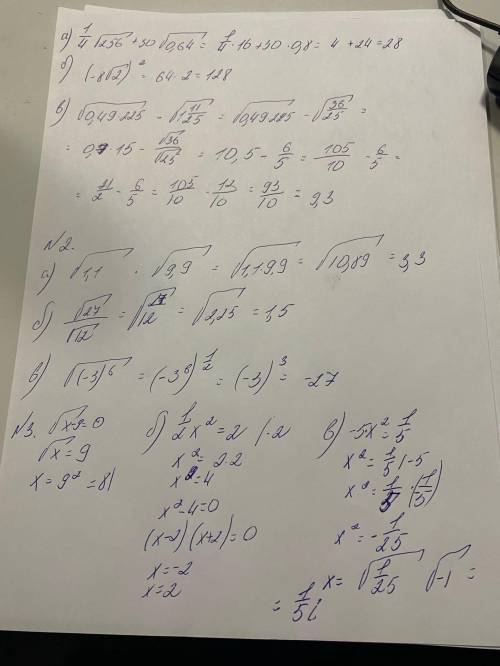 а) 1/4 √256 + 30 √0,64 = 1/4 · 16 + 30 · 0,8 = 4 + 24 = 28
б) (-8√2)² = 64 · 2 = 128
в) √0,49·225 - √1 11/25 = √0,49·225 - √36/25 =
= 0,7 · 15 - √36/√25 = 10,5 - 6/5 = 105/10 - 6/5 =
= 21/2 - 6/5 = 105/10 - 12/10 = 93/10 = 9,3
№2.
а) √1,1 · √9,9 = √1,1·9,9 = √10,89 = 3,3
б) √27/√12 = √27/12 = √2,25 = 1,5
в) √(-3)⁶ = (-3⁶)^1/2 = (-3)³ = -27
№3. √x-9=0
√x = 9
x = 9² = 81
б) 1/2 x² = 2 |·2
x² = 2·2
x² = 4
x² - 4 = 0
(x-2)(x+2) = 0
x = -2
x = 2
в) -5x² = 1/5
x² = 1/5 | -5
x² = 1/5 · (-1/5)
x² = -1/25
x = √1/25 √-1 =
= 1/5 i